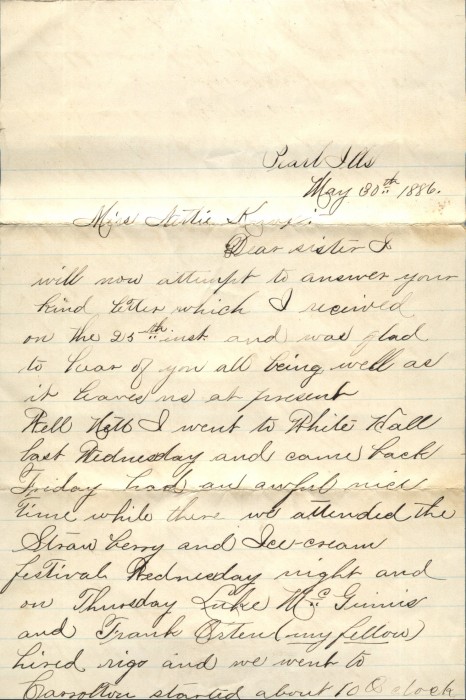 Pearl Ills
May 30th 1886.
Miss Nettie
Dear sister I
will now attempt to answer your
kind letter which I received
on the 25th inst. and was glad
to hear of you all being well as
it leaves us at present
Well Nett I went to White Hall
last Wednesday and came back
Friday had an awful nice
time while there we attended the
Straw berry and Ice-cream
festival Wednesday night and
on Thursday Luke McGinnis
and Frank (my fellow)
hired rigs and we went to
Carrollton started about 10 Oclock